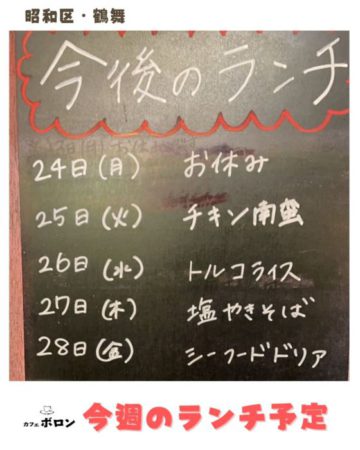 昭和区・鶴舞
今後のランチ
24日(月) お休み
25日(火) チキン南蛮
26日(水) トルコライス
27日(木) 塩やきそば
28日(金) シーフードドリア
カフェ ボロン 今週のランチ予定